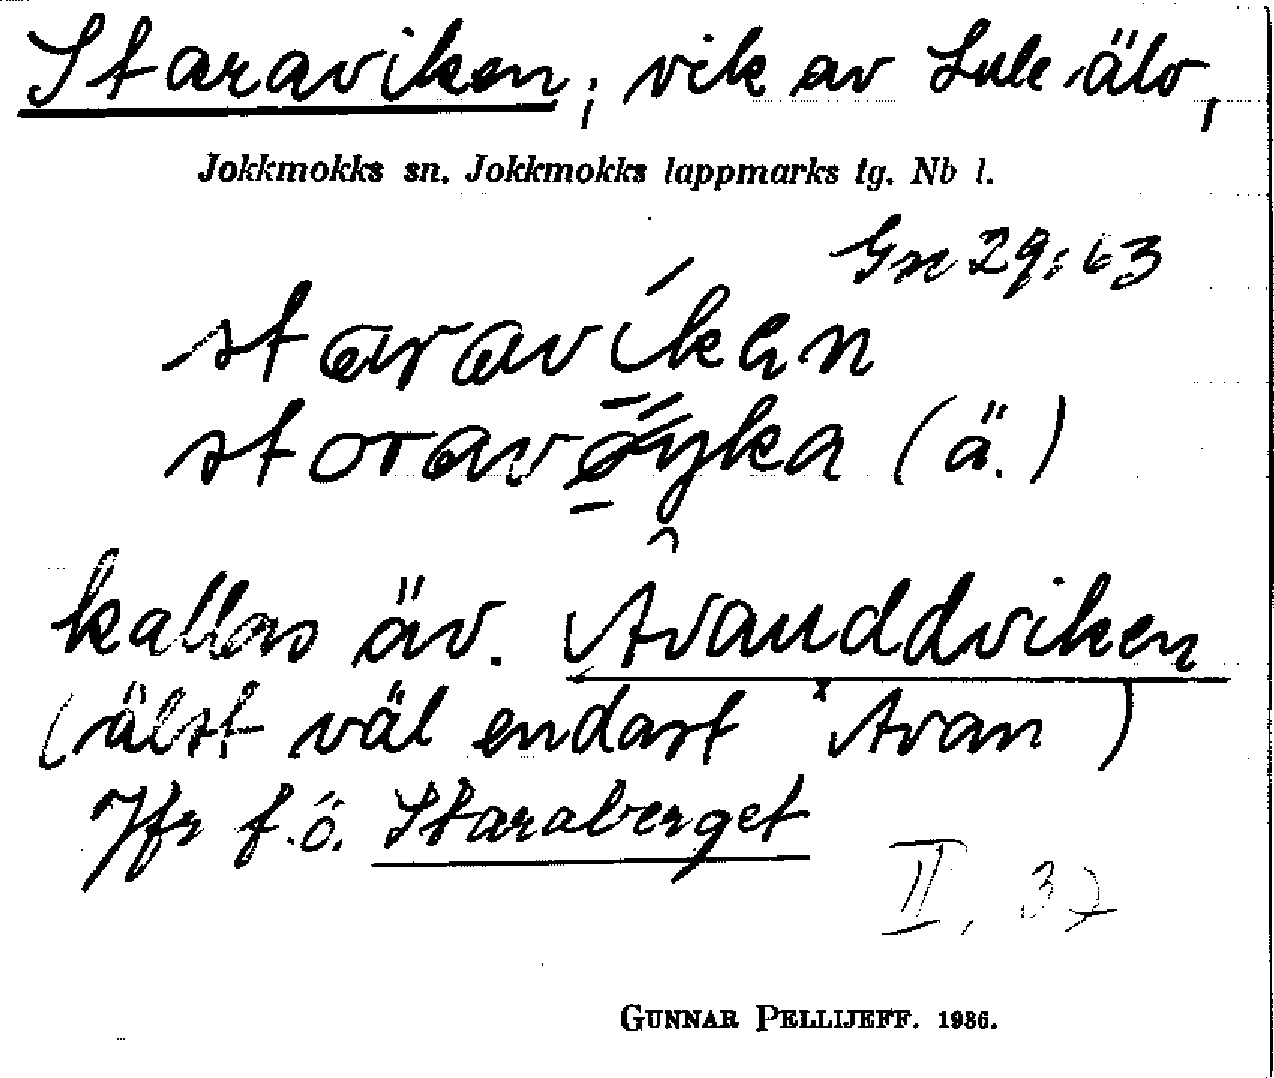 Staraviken; vik av Lule älv,
Jokkmokks sn. Jokkmokks lappmarks tg. Nb l.
Gx 29:63
staravíken
(ä.)
kallas äv. Avauddviken
(älst väl endast ˣAvan)
Jfr f.ö. Staraberget
II, 37
GUNNAR PELLIJEFF. 1936.